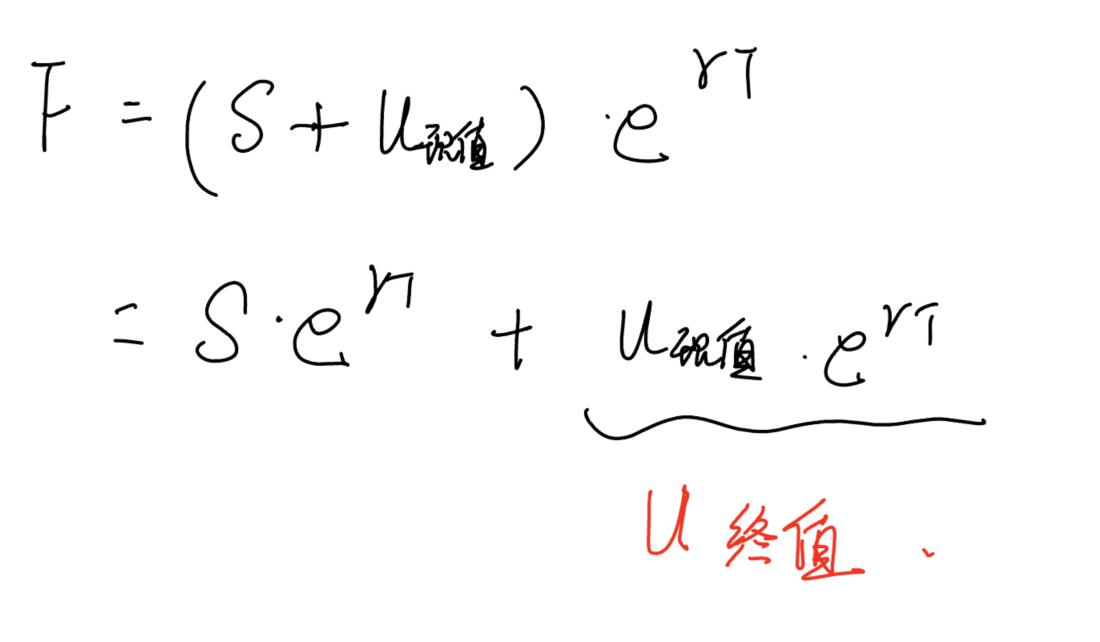 F = (S + U现值) · e^{rT}
= S · e^{rT} + U现值 · e^{rT}
U 终值 .